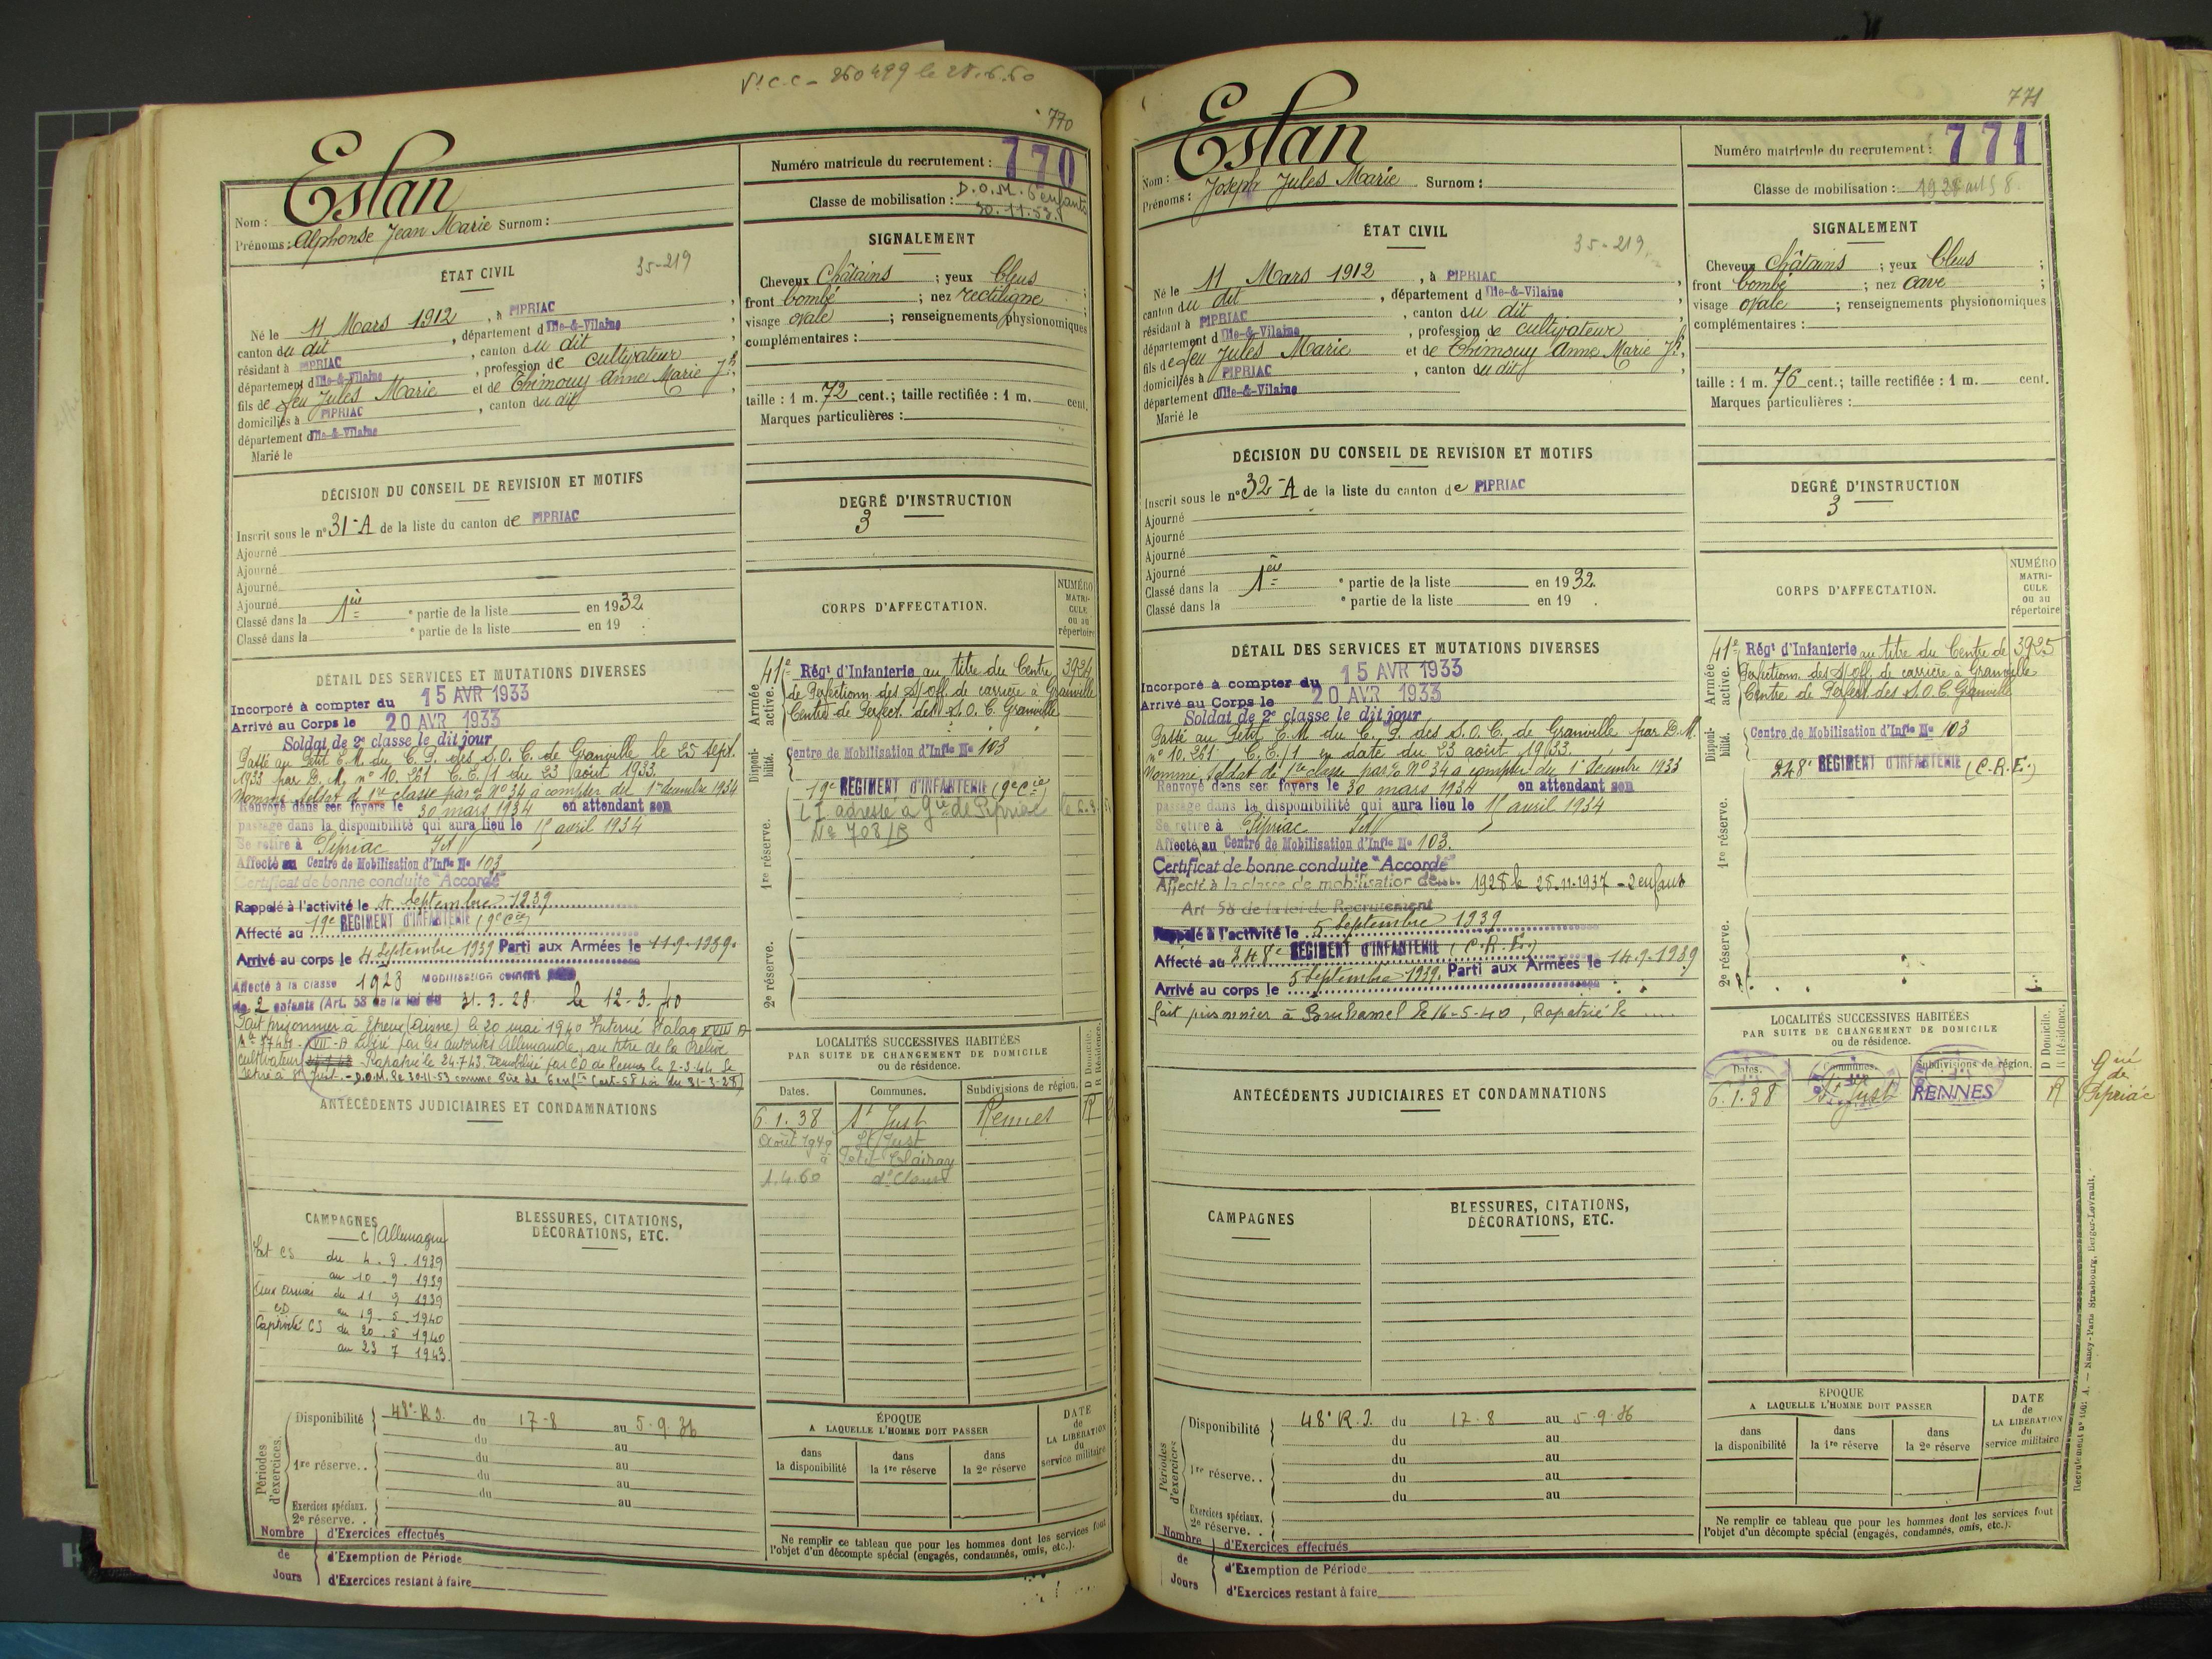 Vt C.C - 260499 le 28.6.60
770
Eslan
Nom :
Prénoms : Alphonse Jean Marie Surnom :
ÉTAT CIVIL
35-219
Né le 11 Mars 1912, à PIPRIAC,
canton du dit, département d'Ille-&-Vilaine,
résidant à PIPRIAC, canton du dit,
département d'Ille-&-Vilaine, profession de cultivateur
fils de feu Jules Marie et de Thimouy Anne Marie Jh,
domiciliés à PIPRIAC, canton du dit,
département d'Ille-&-Vilaine
Marié le
DÉCISION DU CONSEIL DE REVISION ET MOTIFS
Inscrit sous le n° 31-A de la liste du canton de PIPRIAC
Ajourné
Ajourné
Ajourné
Ajourné
Classé dans la 1ère e partie de la liste en 1932.
Classé dans la e partie de la liste en 19 .
DÉTAIL DES SERVICES ET MUTATIONS DIVERSES
Incorporé à compter du 15 AVR 1933
Arrivé au Corps le 20 AVR 1933
Soldat de 2e classe le dit jour
Passé au Petit E.M. du C.P. des S.O.C. de Granville le 25 sept.
1933 par D.M. n° 10.261 C.E./1 du 23 août 1933.
Nommé soldat d 1re classe par % N° 34 à compter du 1er décembre 1934
Renvoyé dans ses foyers le 30 mars 1934 en attendant son
passage dans la disponibilité qui aura lieu le 15 avril 1934
Se retire à Pipriac I&V
Affecté au Centre de Mobilisation d'Infie N° 103
Certificat de bonne conduite "Accordé"
Rappelé à l'activité le 4 septembre 1939
Affecté au 19e REGIMENT D'INFANTERIE (9e Cie)
Arrivé au corps le 4 Septembre 1939 Parti aux Armées le 11-9-1939.
Affecté à la classe 1928 mobilisation comme père
de 2 enfants (Art. 58 de la loi du 31.3.28 le 12-3.40
Fait prisonnier à Etreux (Aisne) le 20 mai 1940 Interné Stalag XVIII A
N° 77481 - XVII-A Libéré par les autorités Allemandes, au titre de la Relève
cultivateur - Rapatrié le 24.7.43 Démobilisé par C.D de Rennes le 2-3-44 Se
retire à St Just. - D.O.M. le 30-11-53 comme père de 6 enfts (art-58 Loi du 31-3-28)
ANTÉCÉDENTS JUDICIAIRES ET CONDAMNATIONS
CAMPAGNES
c/Allemagne
Int CS du 4 . 9 . 1939
au 10 . 9 1939
Aux armées du 11 9 1939
CD au 19 . 5 . 1940
Captivité CS du 20 . 5 1940
au 23 7 1943.
BLESSURES, CITATIONS,
DÉCORATIONS, ETC.
Périodes d'exercices.
Disponibilité 48e R.I. du 17-8 au 5-9.36
du au
1re réserve.. du au
du au
Exercices spéciaux. du au
2e réserve. .
Nombre de Jours
d'Exercices effectués
d'Exemption de Période
d'Exercices restant à faire
Numéro matricule du recrutement : 770
Classe de mobilisation : D.O.M. 6 enfants
30.11.53.
SIGNALEMENT
Cheveux Châtains ; yeux bleus ;
front bombé ; nez rectiligne ;
visage ovale ; renseignements physionomiques
complémentaires :
taille : 1 m. 72 cent.; taille rectifiée : 1 m. cent.
Marques particulières :
DEGRÉ D'INSTRUCTION
3
CORPS D'AFFECTATION.
NUMÉRO
MATRI-
CULE
ou au
répertoire
Armée active.
41e Régt d'Infanterie au titre du Centre 3924
de Perfectionn. des S/off. de carrière à Granville
Centre de Perfect. des S.O.C. Granville
Disponibilité.
Centre de Mobilisation d'Infie N° 103
19e REGIMENT D'INFANTERIE (9e Cie)
L I adressé à Gie de Pipriac
N° 708/B
1re réserve.
2e réserve.
LOCALITÉS SUCCESSIVES HABITÉES
PAR SUITE DE CHANGEMENT DE DOMICILE
ou de résidence.
D Domicile.
R Résidence.
Dates. Communes. Subdivisions de région.
6.1.38 St Just Rennes R
Août 1949 St Just
à Petit Clairay
1.4.60 do
ÉPOQUE
A LAQUELLE L'HOMME DOIT PASSER
dans la disponibilité
dans la 1re réserve
dans la 2e réserve
DATE de LA LIBÉRATION du service militaire
Ne remplir ce tableau que pour les hommes dont les services font
l'objet d'un décompte spécial (engagés, condamnés, omis, etc.).
771
Eslan
Nom :
Prénoms : Joseph Jules Marie Surnom :
ÉTAT CIVIL
35-219
Né le 11 Mars 1912, à PIPRIAC,
canton du dit, département d'Ille-&-Vilaine,
résidant à PIPRIAC, canton du dit,
département d'Ille-&-Vilaine, profession de cultivateur
fils de feu Jules Marie et de Thimouy Anne Marie Jh,
domiciliés à PIPRIAC, canton du dit,
département d'Ille-&-Vilaine
Marié le
DÉCISION DU CONSEIL DE REVISION ET MOTIFS
Inscrit sous le n° 32-A de la liste du canton de PIPRIAC
Ajourné
Ajourné
Ajourné
Ajourné
Classé dans la 1ère e partie de la liste en 1932.
Classé dans la e partie de la liste en 19 .
DÉTAIL DES SERVICES ET MUTATIONS DIVERSES
Incorporé à compter du 15 AVR 1933
Arrivé au Corps le 20 AVR 1933
Soldat de 2e classe le dit jour
Passé au Petit E.M du C.P. des S.O.C. de Granville par D.M.
n° 10.261 C.E./1 en date du 23 août 1933.
Nommé soldat de 1re classe par % N° 34 à compter du 1er décembre 1933
Renvoyé dans ses foyers le 30 mars 1934 en attendant son
passage dans la disponibilité qui aura lieu le 15 avril 1934
Se retire à Pipriac I&V
Affecté au Centre de Mobilisation d'Infie N° 103.
Certificat de bonne conduite "Accordé"
Affecté à la classe de mobilisation de 1928 le 25.11.1937 - 2 enfants
Art 58 de la loi de Recrutement
Rappelé à l'activité le 5 Septembre 1939
Affecté au 248e REGIMENT D'INFANTERIE (C.R.E.)
Arrivé au corps le 5 Septembre 1939. Parti aux Armées le 14.9.1939
fait prisonnier à Bouhamel le 16-5-40, Rapatrié le ....
ANTÉCÉDENTS JUDICIAIRES ET CONDAMNATIONS
CAMPAGNES
BLESSURES, CITATIONS,
DÉCORATIONS, ETC.
Périodes d'exercices
Disponibilité 48e R.I. du 17.8 au 5.9.36
du au
1re réserve.. du au
du au
Exercices spéciaux. du au
2e réserve. .
Nombre de Jours
d'Exercices effectués
d'Exemption de Période
d'Exercices restant à faire
Numéro matricule du recrutement : 771
Classe de mobilisation : 1928 art 58
SIGNALEMENT
Cheveux châtains ; yeux bleus ;
front bombé ; nez cave ;
visage ovale ; renseignements physionomiques
complémentaires :
taille : 1 m. 76 cent.; taille rectifiée : 1 m. cent.
Marques particulières :
DEGRÉ D'INSTRUCTION
3
CORPS D'AFFECTATION.
NUMÉRO
MATRI-
CULE
ou au
répertoire
Armée active.
41e Régt d'Infanterie au titre du Centre de 3925
Perfectionn. des S/off. de carrière à Granville
Centre de Perfect. des S.O.C. Granville
Disponibilité.
Centre de Mobilisation d'Infie N° 103
248e REGIMENT D'INFANTERIE (C.R.E.)
1re réserve.
2e réserve.
LOCALITÉS SUCCESSIVES HABITÉES
PAR SUITE DE CHANGEMENT DE DOMICILE
ou de résidence.
D Domicile.
R Résidence.
Dates. Communes. Subdivisions de région.
6.1.38 St Just RENNES R
Gie de Pipriac
ÉPOQUE
A LAQUELLE L'HOMME DOIT PASSER
dans la disponibilité
dans la 1re réserve
dans la 2e réserve
DATE de LA LIBÉRATION du service militaire
Ne remplir ce tableau que pour les hommes dont les services font
l'objet d'un décompte spécial (engagés, condamnés, omis, etc.).
Nancy-Paris-Strasbourg, Berger-Levrault.